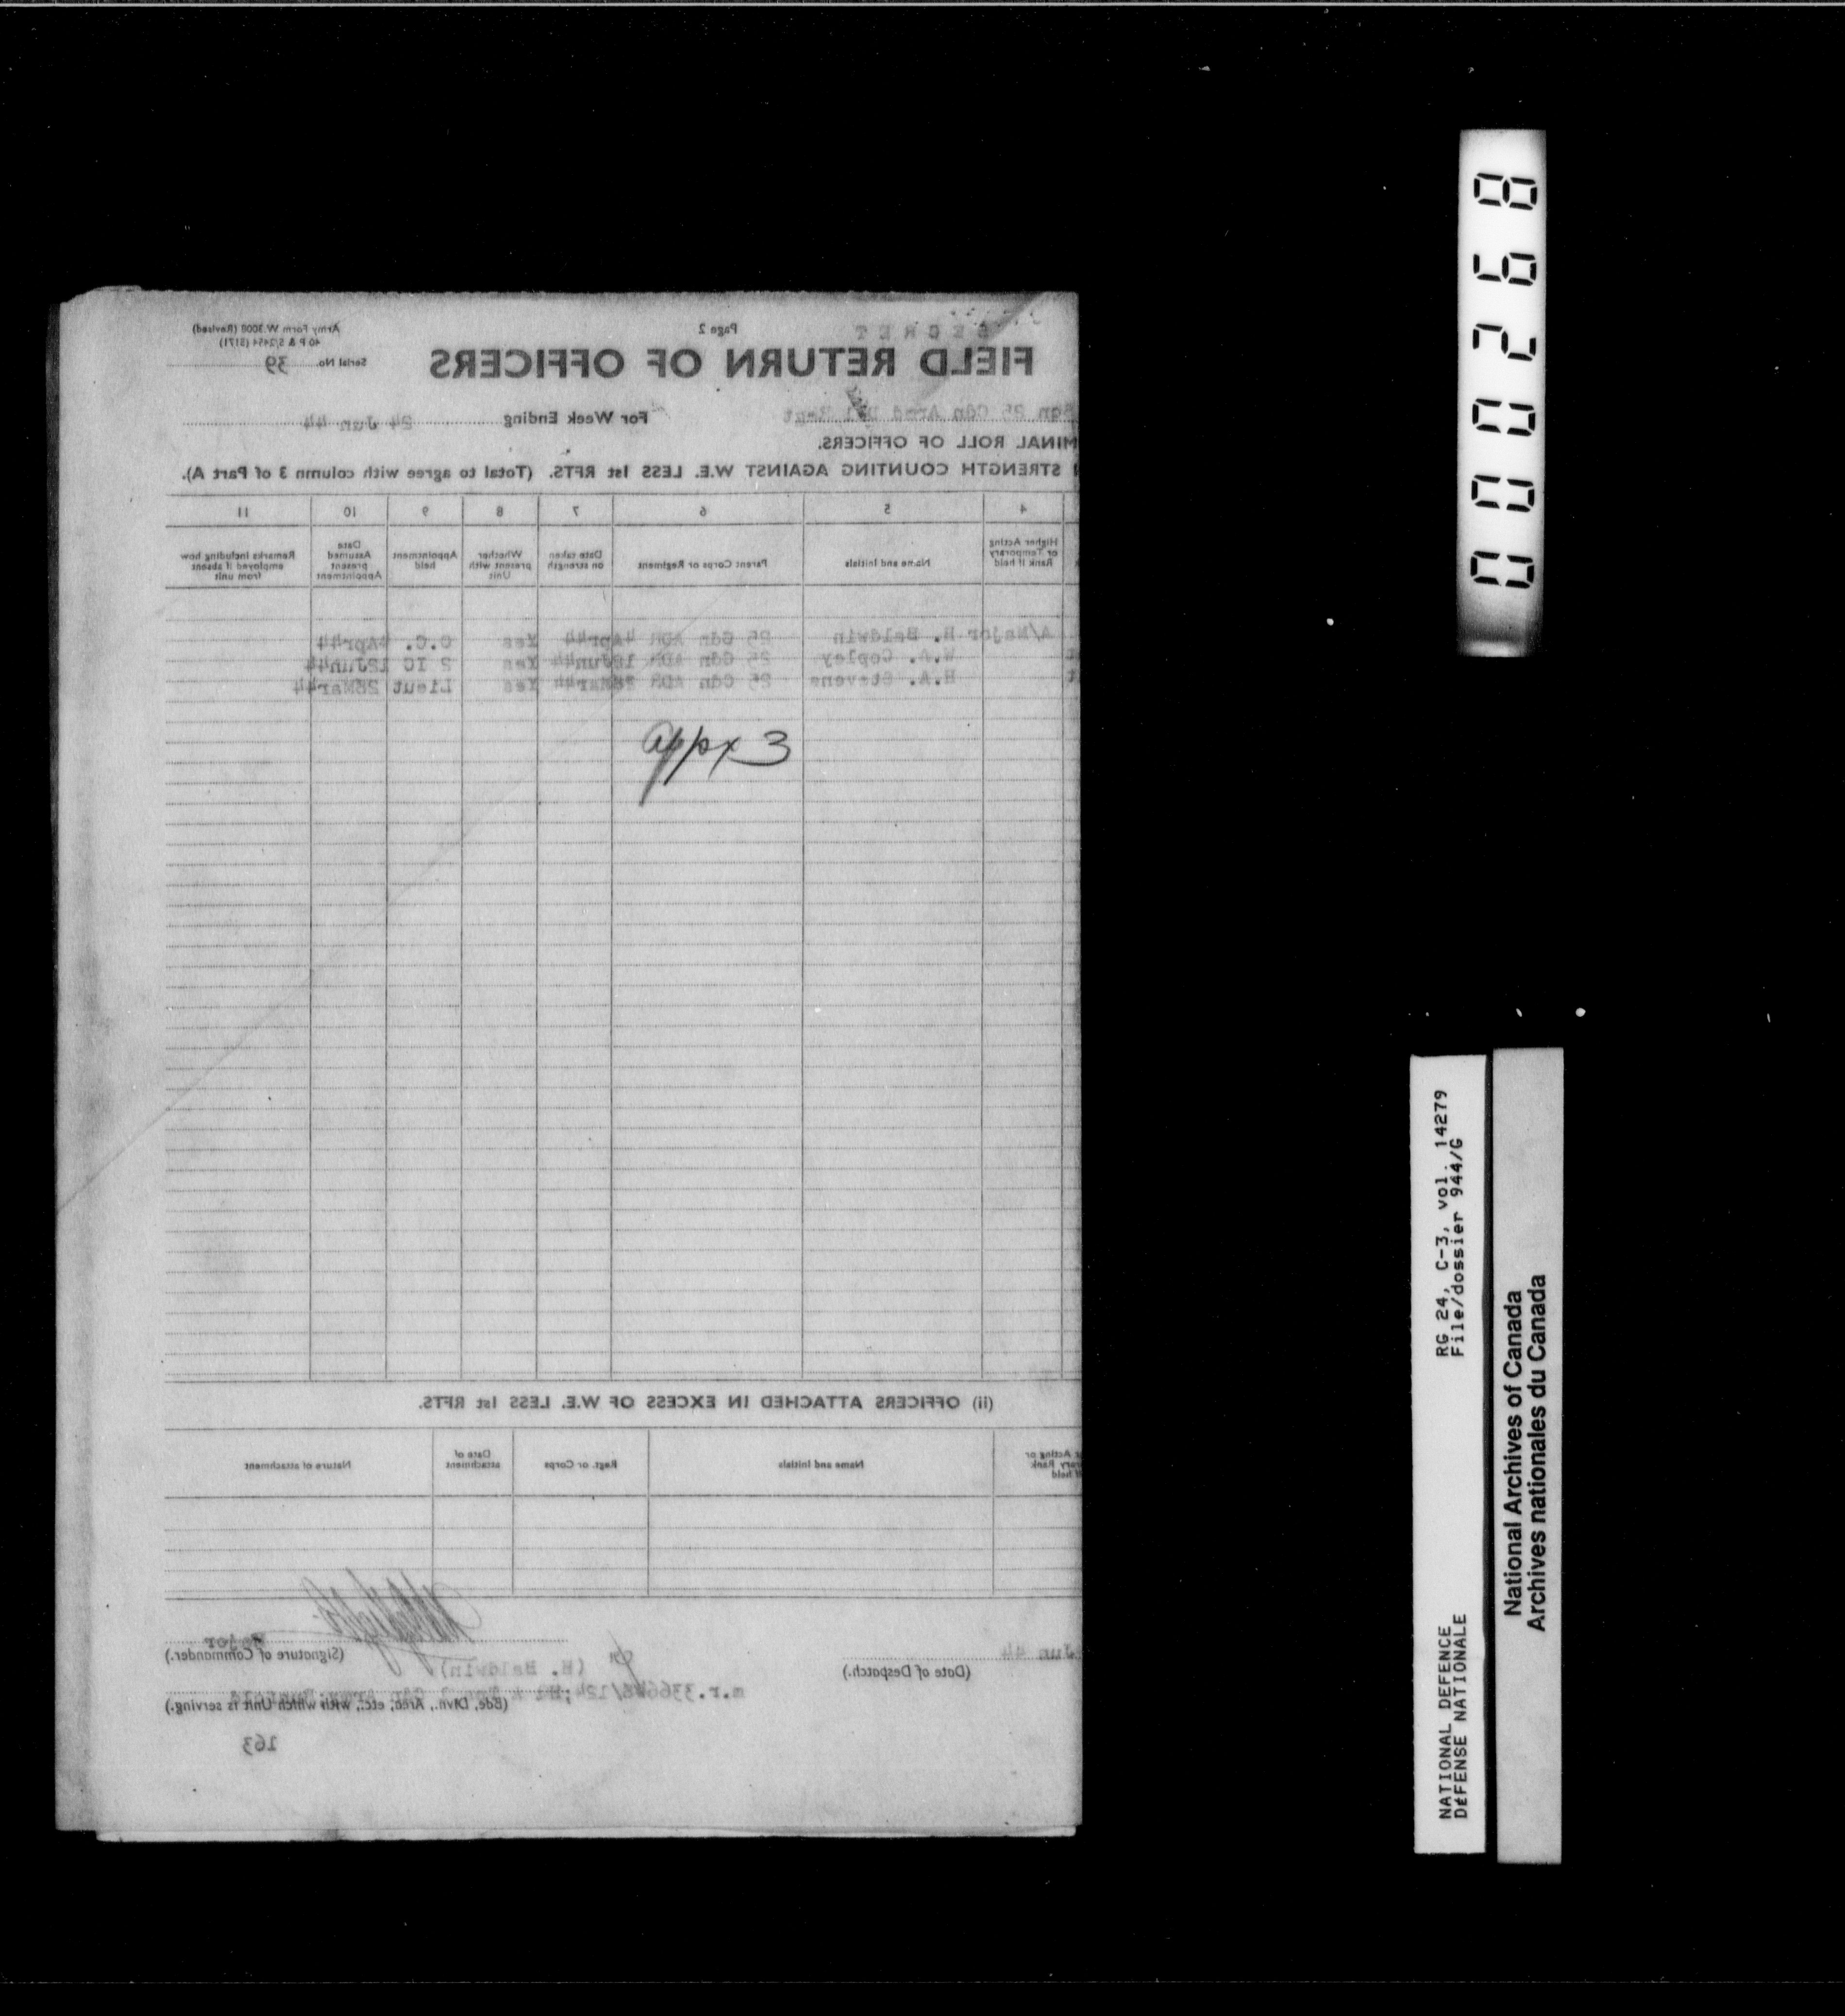 SECRET
Page 2
Army Form W.3008 (Revised)
40 P & S/2454 (5171)
FIELD RETURN OF OFFICERS
Serial No. 39
Sqn 25 Cdn Armd Del Regt
For Week Ending 24 Jun 44
MINAL ROLL OF OFFICERS.
STRENGTH COUNTING AGAINST W.E. LESS 1st RFTS. (Total to agree with column 3 of Part A).
4 5 6 7 8 9 10 11
Higher Acting or Temporary Rank if held
Name and Initials
Parent Corps or Regiment
Date taken on strength
Whether present with Unit
Appointment held
Date Assumed present Appointment
Remarks including how employed if absent from unit
A/Major H. Baldwin 25 Cdn ADR 4Apr44 Yes O.C. 4Apr44
W.A. Copley 25 Cdn ADR 12Jun44 Yes 2 IC 12Jun44
H.A. Stevens 25 Cdn ADR 28Mar44 Yes Lieut 28Mar44
appx 3
(ii) OFFICERS ATTACHED IN EXCESS OF W.E. LESS 1st RFTS.
Acting or
Rank
held
Name and Initials
Regt. or Corps
Date of attachment
Nature of attachment
Jun 44
Major
(Date of Despatch.)
(Signature of Commander.)
(H. Baldwin)
(Bde, Divn., Area, etc., with which Unit is serving.)
163
000268
RG 24, C-3, vol. 14279
File/dossier 944/G
NATIONAL DEFENCE
DÉFENSE NATIONALE
National Archives of Canada
Archives nationales du Canada